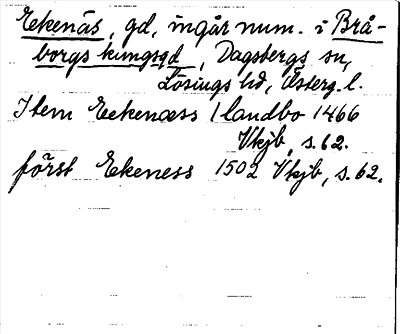 Ekenäs, gd, ingår num. i Brå-
borgs kungsgd, Dagsbergs sn,
Lösings hd, Österg. l.
Item Eekenæss 1 landbo 1466
Vkjb, s. 62.
först Ekeness 1502 Vkjb, s. 62.